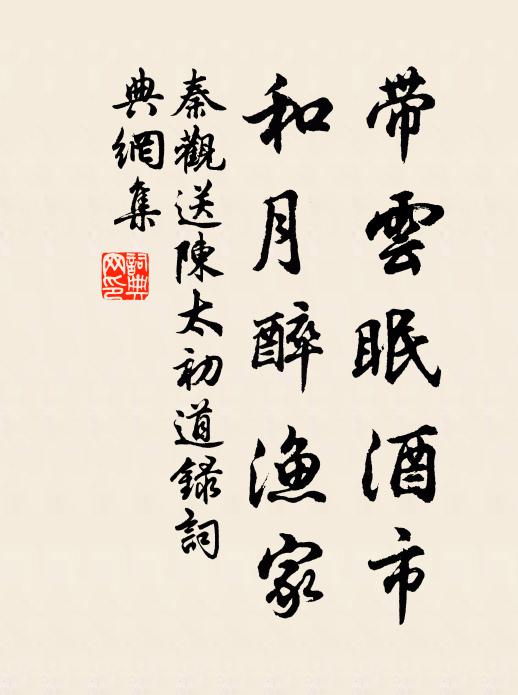 带雲眠酒市
和月醉渔家
秦觀送陳太初道録詞
典網集
詞典网印